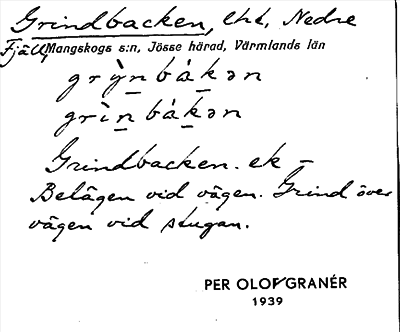 Grindbacken, lht, Nedre
Fjäll, Mangskogs s:n, Jösse härad, Värmlands län
grỳn bákən
grìn bákən
Grindbacken. ek –
Belägen vid vägen. Grind över
vägen vid stugan.
PER OLOF GRANÉR
1939